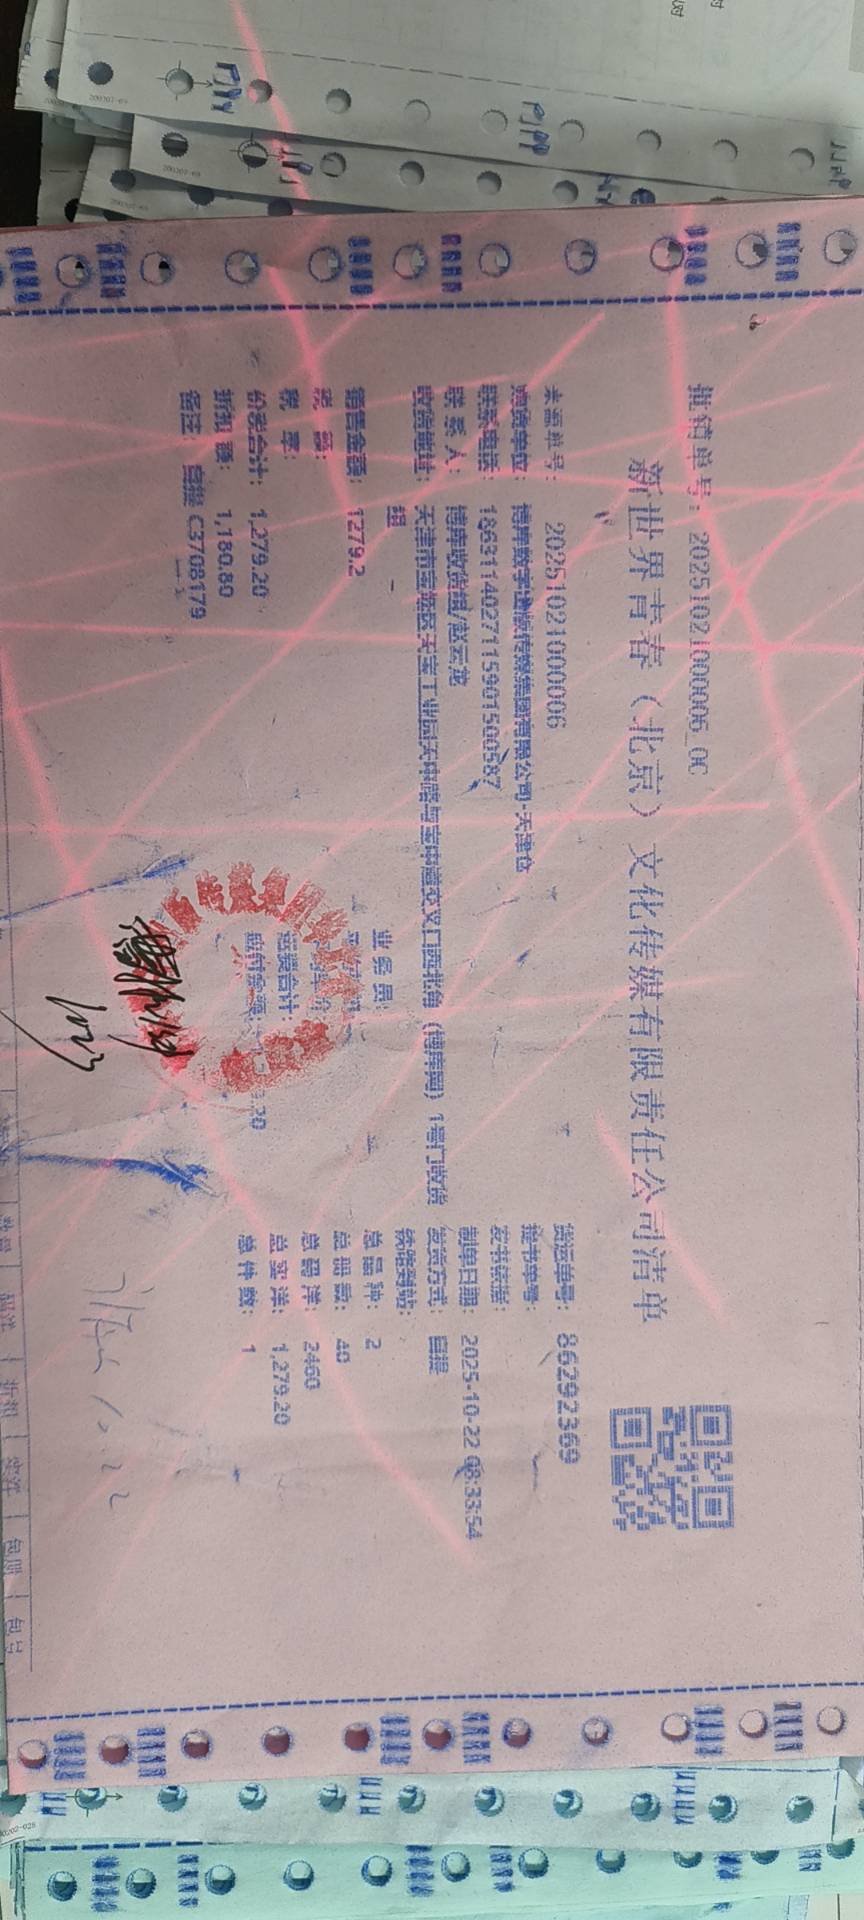 批销单号：20251021000006_0C
新世界青春（北京）文化传媒有限责任公司清单
来源单号：20251021000006
货运单号：86292369
购货单位：博库数字出版传媒集团有限公司-天津仓
提书单号：
联系电话：1863114027115901500587
发书依据：
联 系 人：博库收货组/赵云龙
制单日期：2025-10-22 08:33:54
收货地址：天津市宝坻区天宝工业园天中路与宝中道交叉口西北角（博库网）1号门收货组
发货方式：自提
铁路到站：
业务员：
销售金额：1279.2
总品种：2
税 额：
总册数：40
税 率：
总码洋：2460
价税合计：1,279.20
运费合计：
总实洋：1,279.20
折扣额：1,180.80
应付金额：
总件数：1
备注：自提 C3708179
10.22